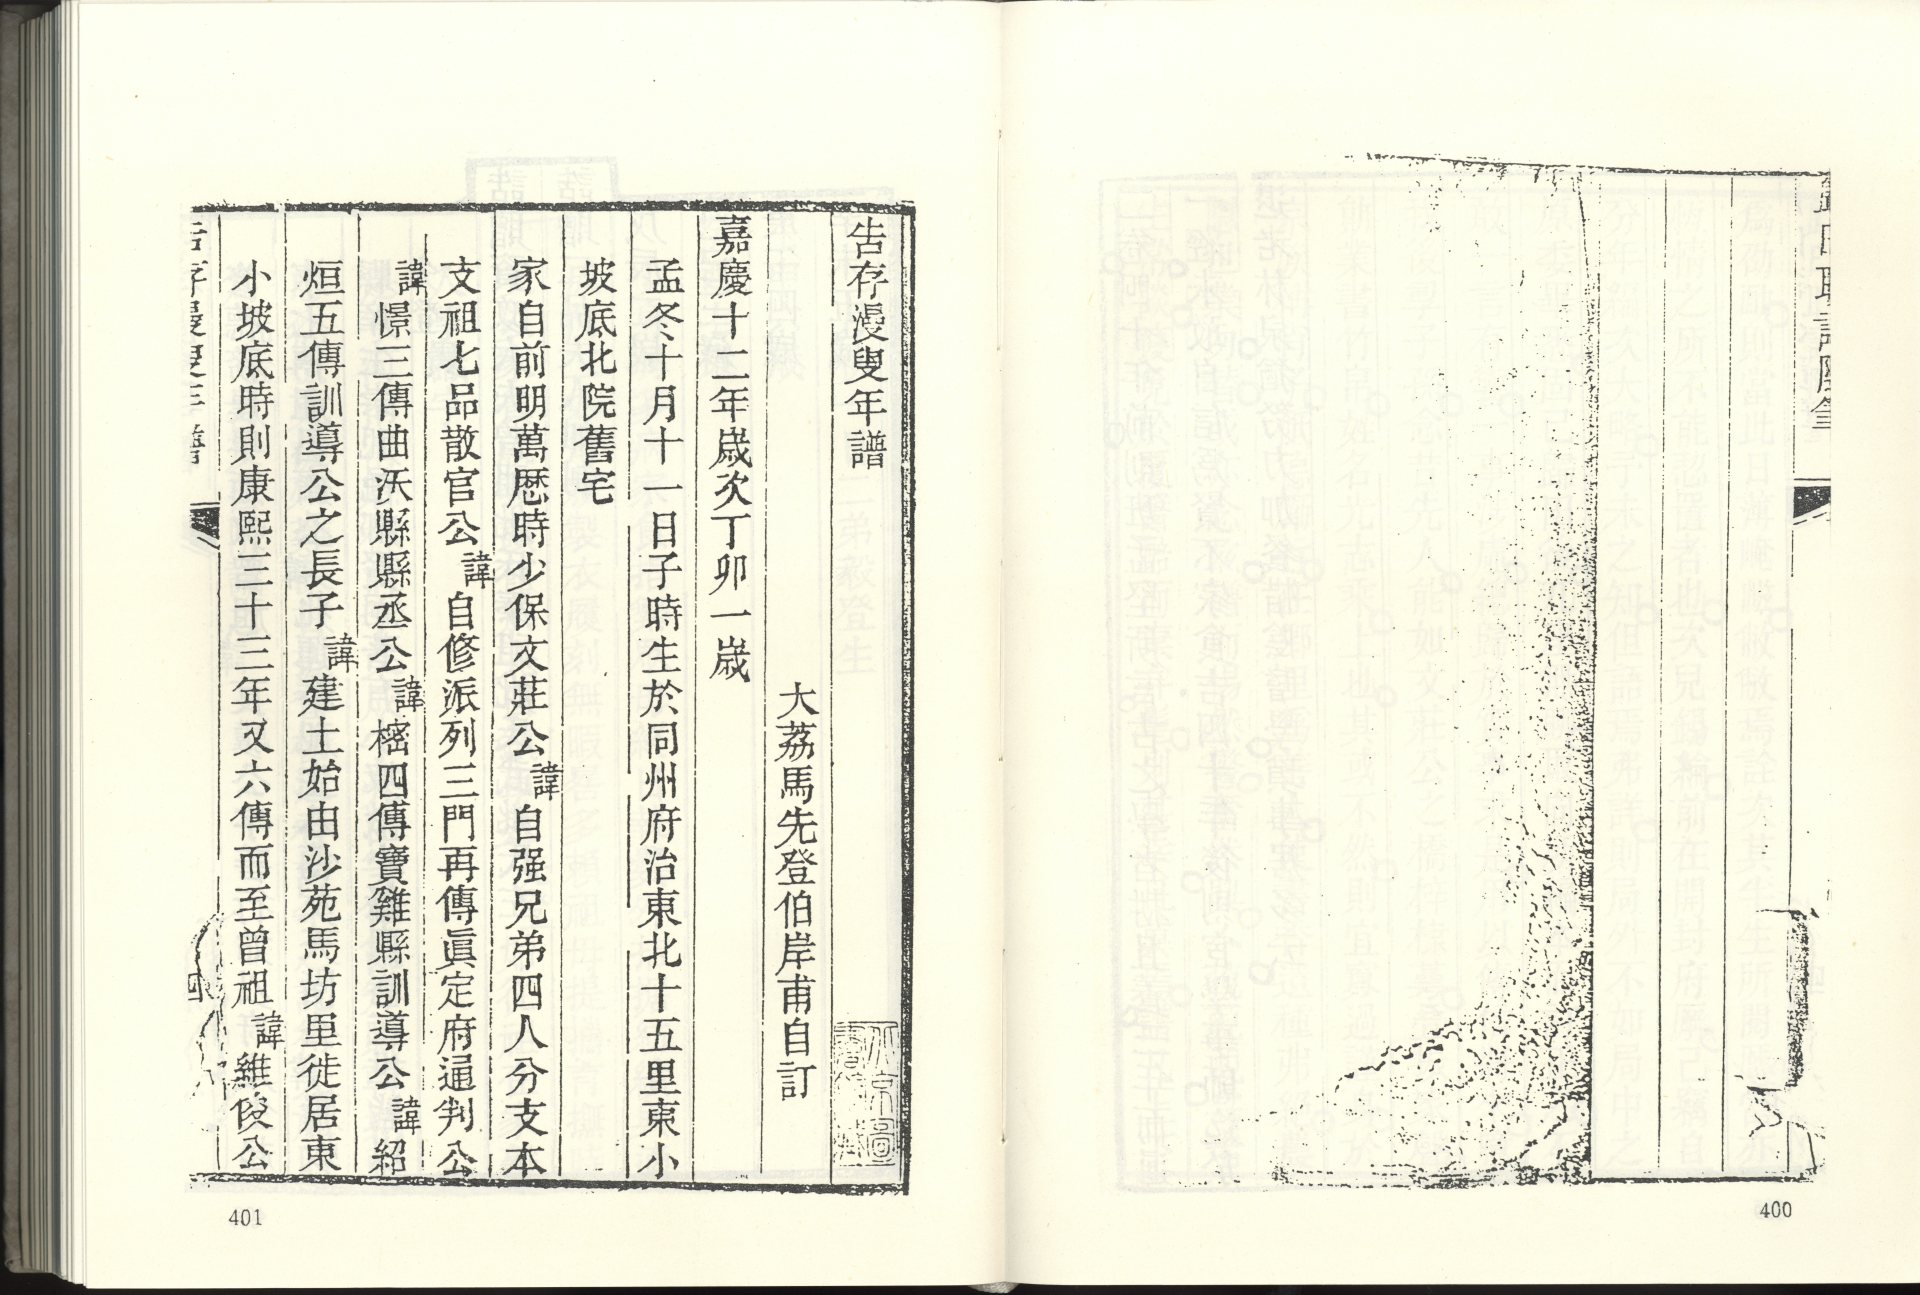 400
告存漫叟年譜
大荔馬先登伯岸甫自訂
嘉慶十二年歲次丁卯一歲
孟冬十月十一日子時生於同州府治東北十五里東小
坡底北院舊宅
家自前明萬厯時少保文莊公諱自强兄弟四人分支本
支祖七品散官公諱自修派列三門再傳眞定府通判公
諱憬三傳曲沃縣縣丞公諱樒四傳寶雞縣訓導公諱紹
烜五傳訓導公之長子諱建土始由沙苑馬坊里徙居東
小坡底時則康熙三十三年又六傳而至曾祖諱維俊公
401